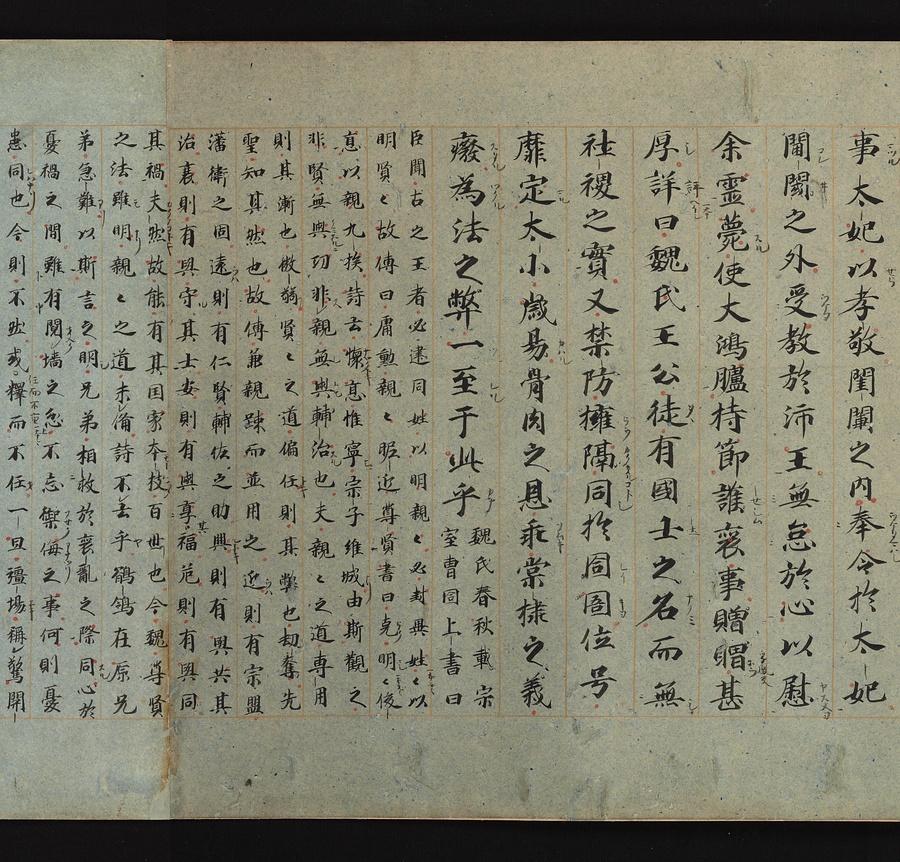 事太妃以孝敬閨闈之内奉令於太妃
閫閾之外受教於沛王無怠於心以慰
余靈薨使大鴻臚持節護喪事贈賵甚
厚評曰魏氏王公徒有國士之名而無
社稷之實又禁防擁隔同於囹圄位号
靡定大小歳易骨肉之恩乖棠棣之義
癈為法之弊一至于此乎
魏氏春秋載宗
室曹冏上書曰
臣聞古之王者必建同姓以明親〻必封異姓〻以
明賢〻故傳曰庸勳親〻昵近尊賢書曰克明〻後
悳以親九族詩云懷悳惟寧宗子維城由斯觀之
非賢無與功非親無與輔治也夫親〻之道専用
則其漸也微弱賢〻之道偏任則其弊也劫奪先
聖知其然也故傳兼親踈而並用之近則有宗盟
藩衛之固遠則有仁賢輔佐之助興則有與共其
治衰則有與守其土安則有與享其福危則有與同
其禍夫然故能有其国家本枝百世也今魏尊賢
之法雖明親〻之道未備詩不云乎鶺鴒在原兄
弟急難以斯言之明兄弟相救於喪亂之際同心於
憂禍之間雖有鬩墻之忿不忘禦侮之事何則憂
患同也今則不然或釋而不任一旦疆場稱警關